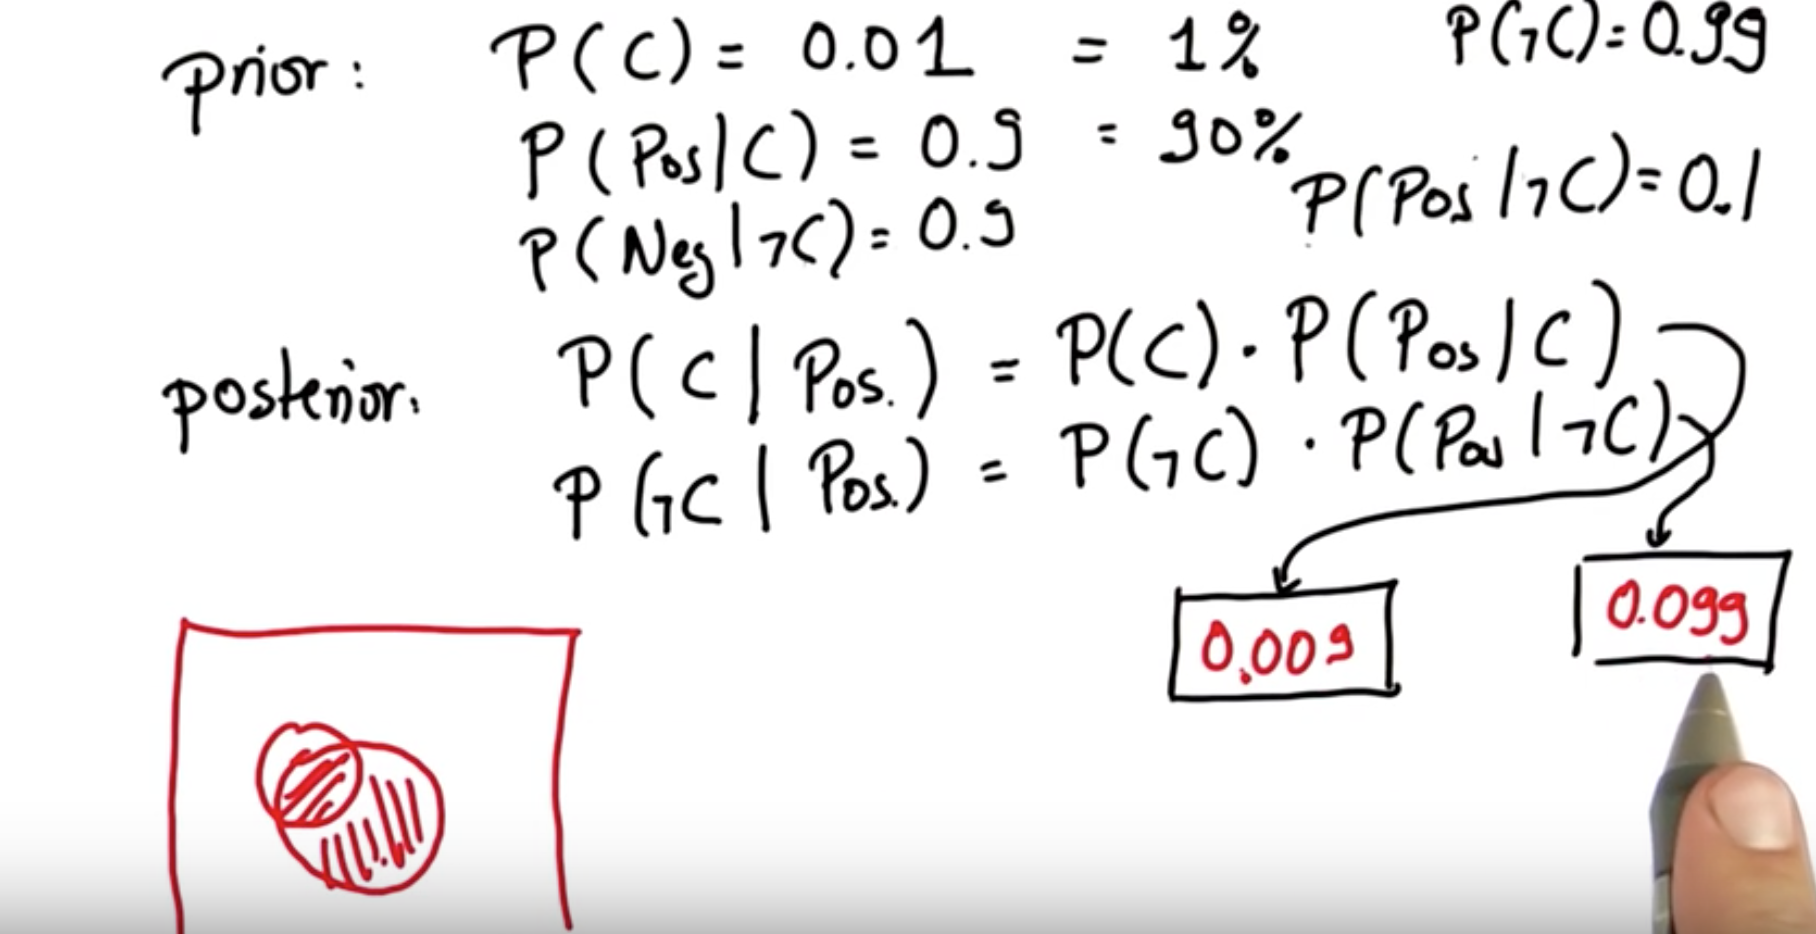 prior: P(C) = 0.01 = 1% P(¬C) = 0.99
P(Pos|C) = 0.9 = 90% P(Pos|¬C) = 0.1
P(Neg|¬C) = 0.9
posterior: P(C|Pos.) = P(C) · P(Pos|C)
P(¬C|Pos.) = P(¬C) · P(Pos|¬C)
0.009 0.099